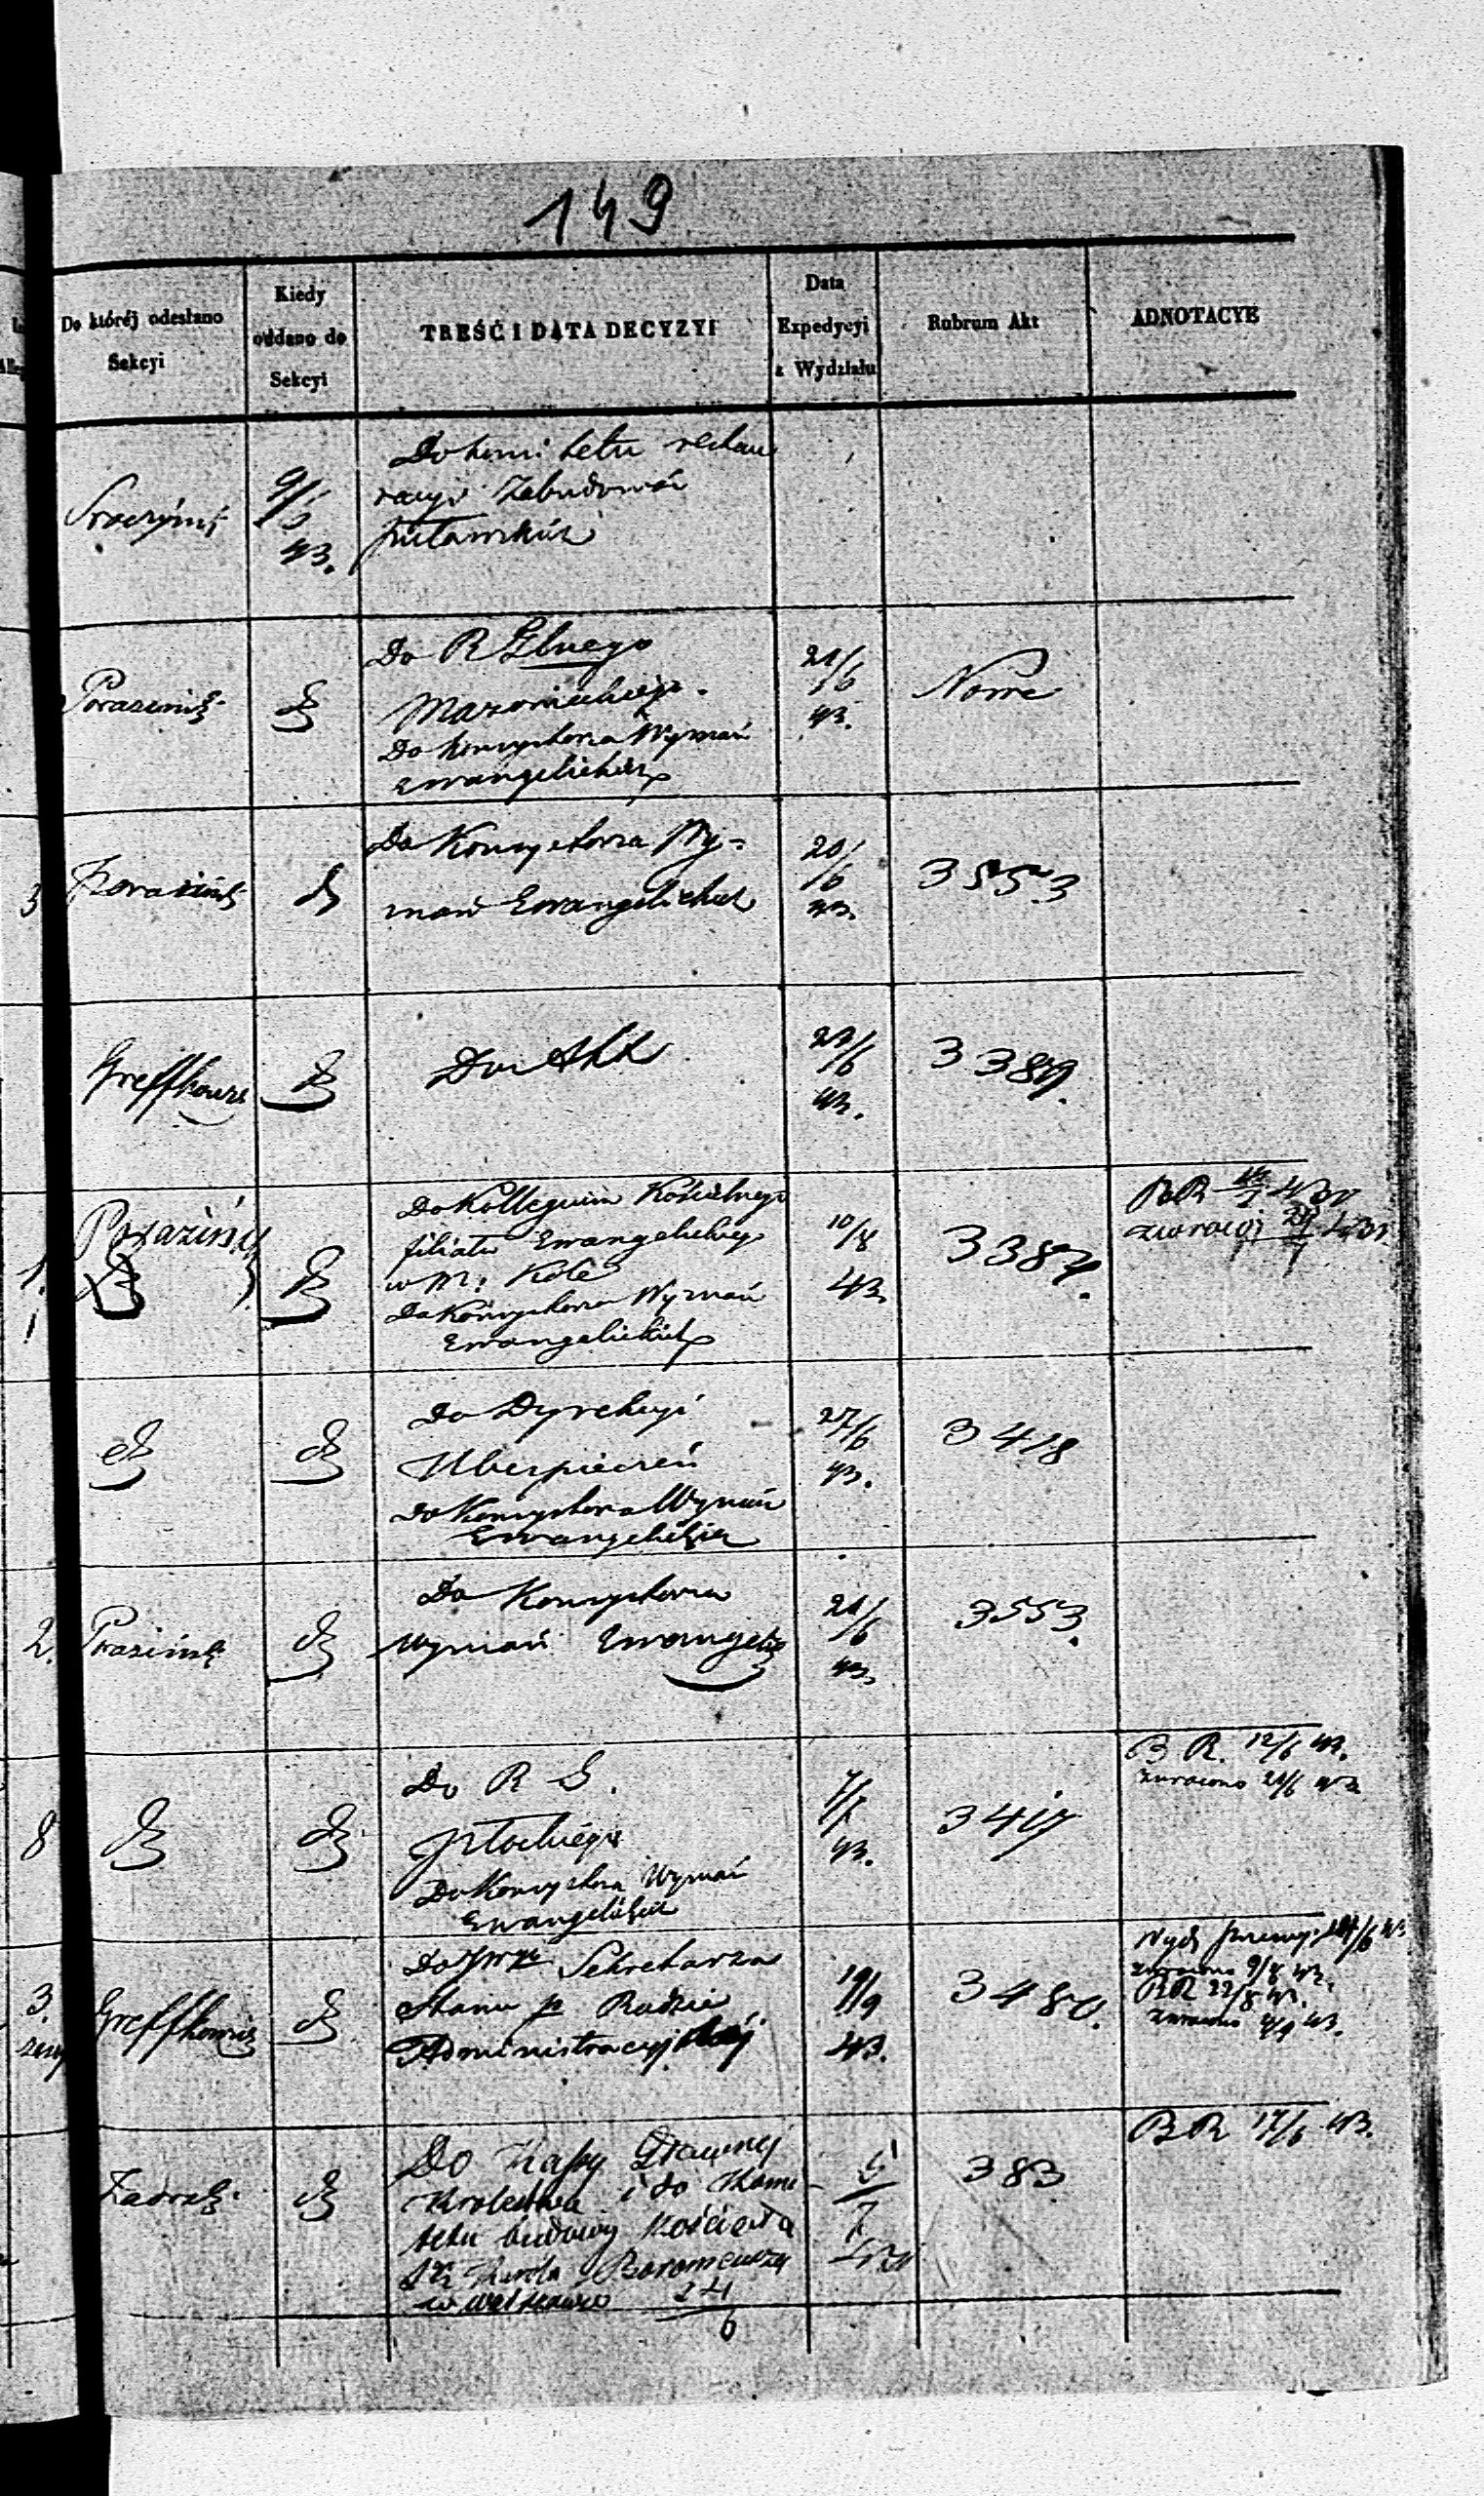 149
Do któréj odesłano
Sekcyi
Kiedy
oddano do
Sekcyi
TREŚĆ I DATA DECYZYI
Data
Expedycyi
z Wydziału
Rubrum Akt
ADNOTACYE
9/6
43.
Do komitetu restau
racyi Zabudowań
puławskich
Porazińsk
Do R Głnego
Mazowieckiego.
Do konsystorza Wyznań
Ewangelickich
21/6
43.
Nowe
3
Poraźińsk
Do Konsystorza Wy-
znań Ewangelickich
20/6
43.
3553
Greffkowicz
Do Akt
22/6
43.
3389.
1.
Poraziński
Do Kollegium Kościelnego
filiału Ewangelickiego
w M. Kole
Do Konsystorza Wyznań
Ewangelickich
10/8
43.
3387.
Do Dyrekcyi
Ubezpieczeń
Do Konsystorza Wyznań
Ewangelickich
27/6
43.
3418
2.
Do Konsystorza
Wyznań Ewangelic
21/6
43.
3553.
8
Do R G.
Płockiego
Do Konsystorza Wyznań
Ewangelickich
7/7
43.
3417
B R. 12/6 43.
zwrócono 21/6 43
3.
Greffkowicz
Do JW Sekretarza
Stanu p Radzie
Administracyjnej
19/9
43.
3480.
zwrócono 9/8 43.
BR 22/8 43.
zwrócono 4/9 43.
Do Kassy Głównej
Królestwa i do Komi-
tetu budowy Kościoła
Sgo Karola Boromeusza
w Warszawie 24
6
5
7
43
383
BR 17/6 43.